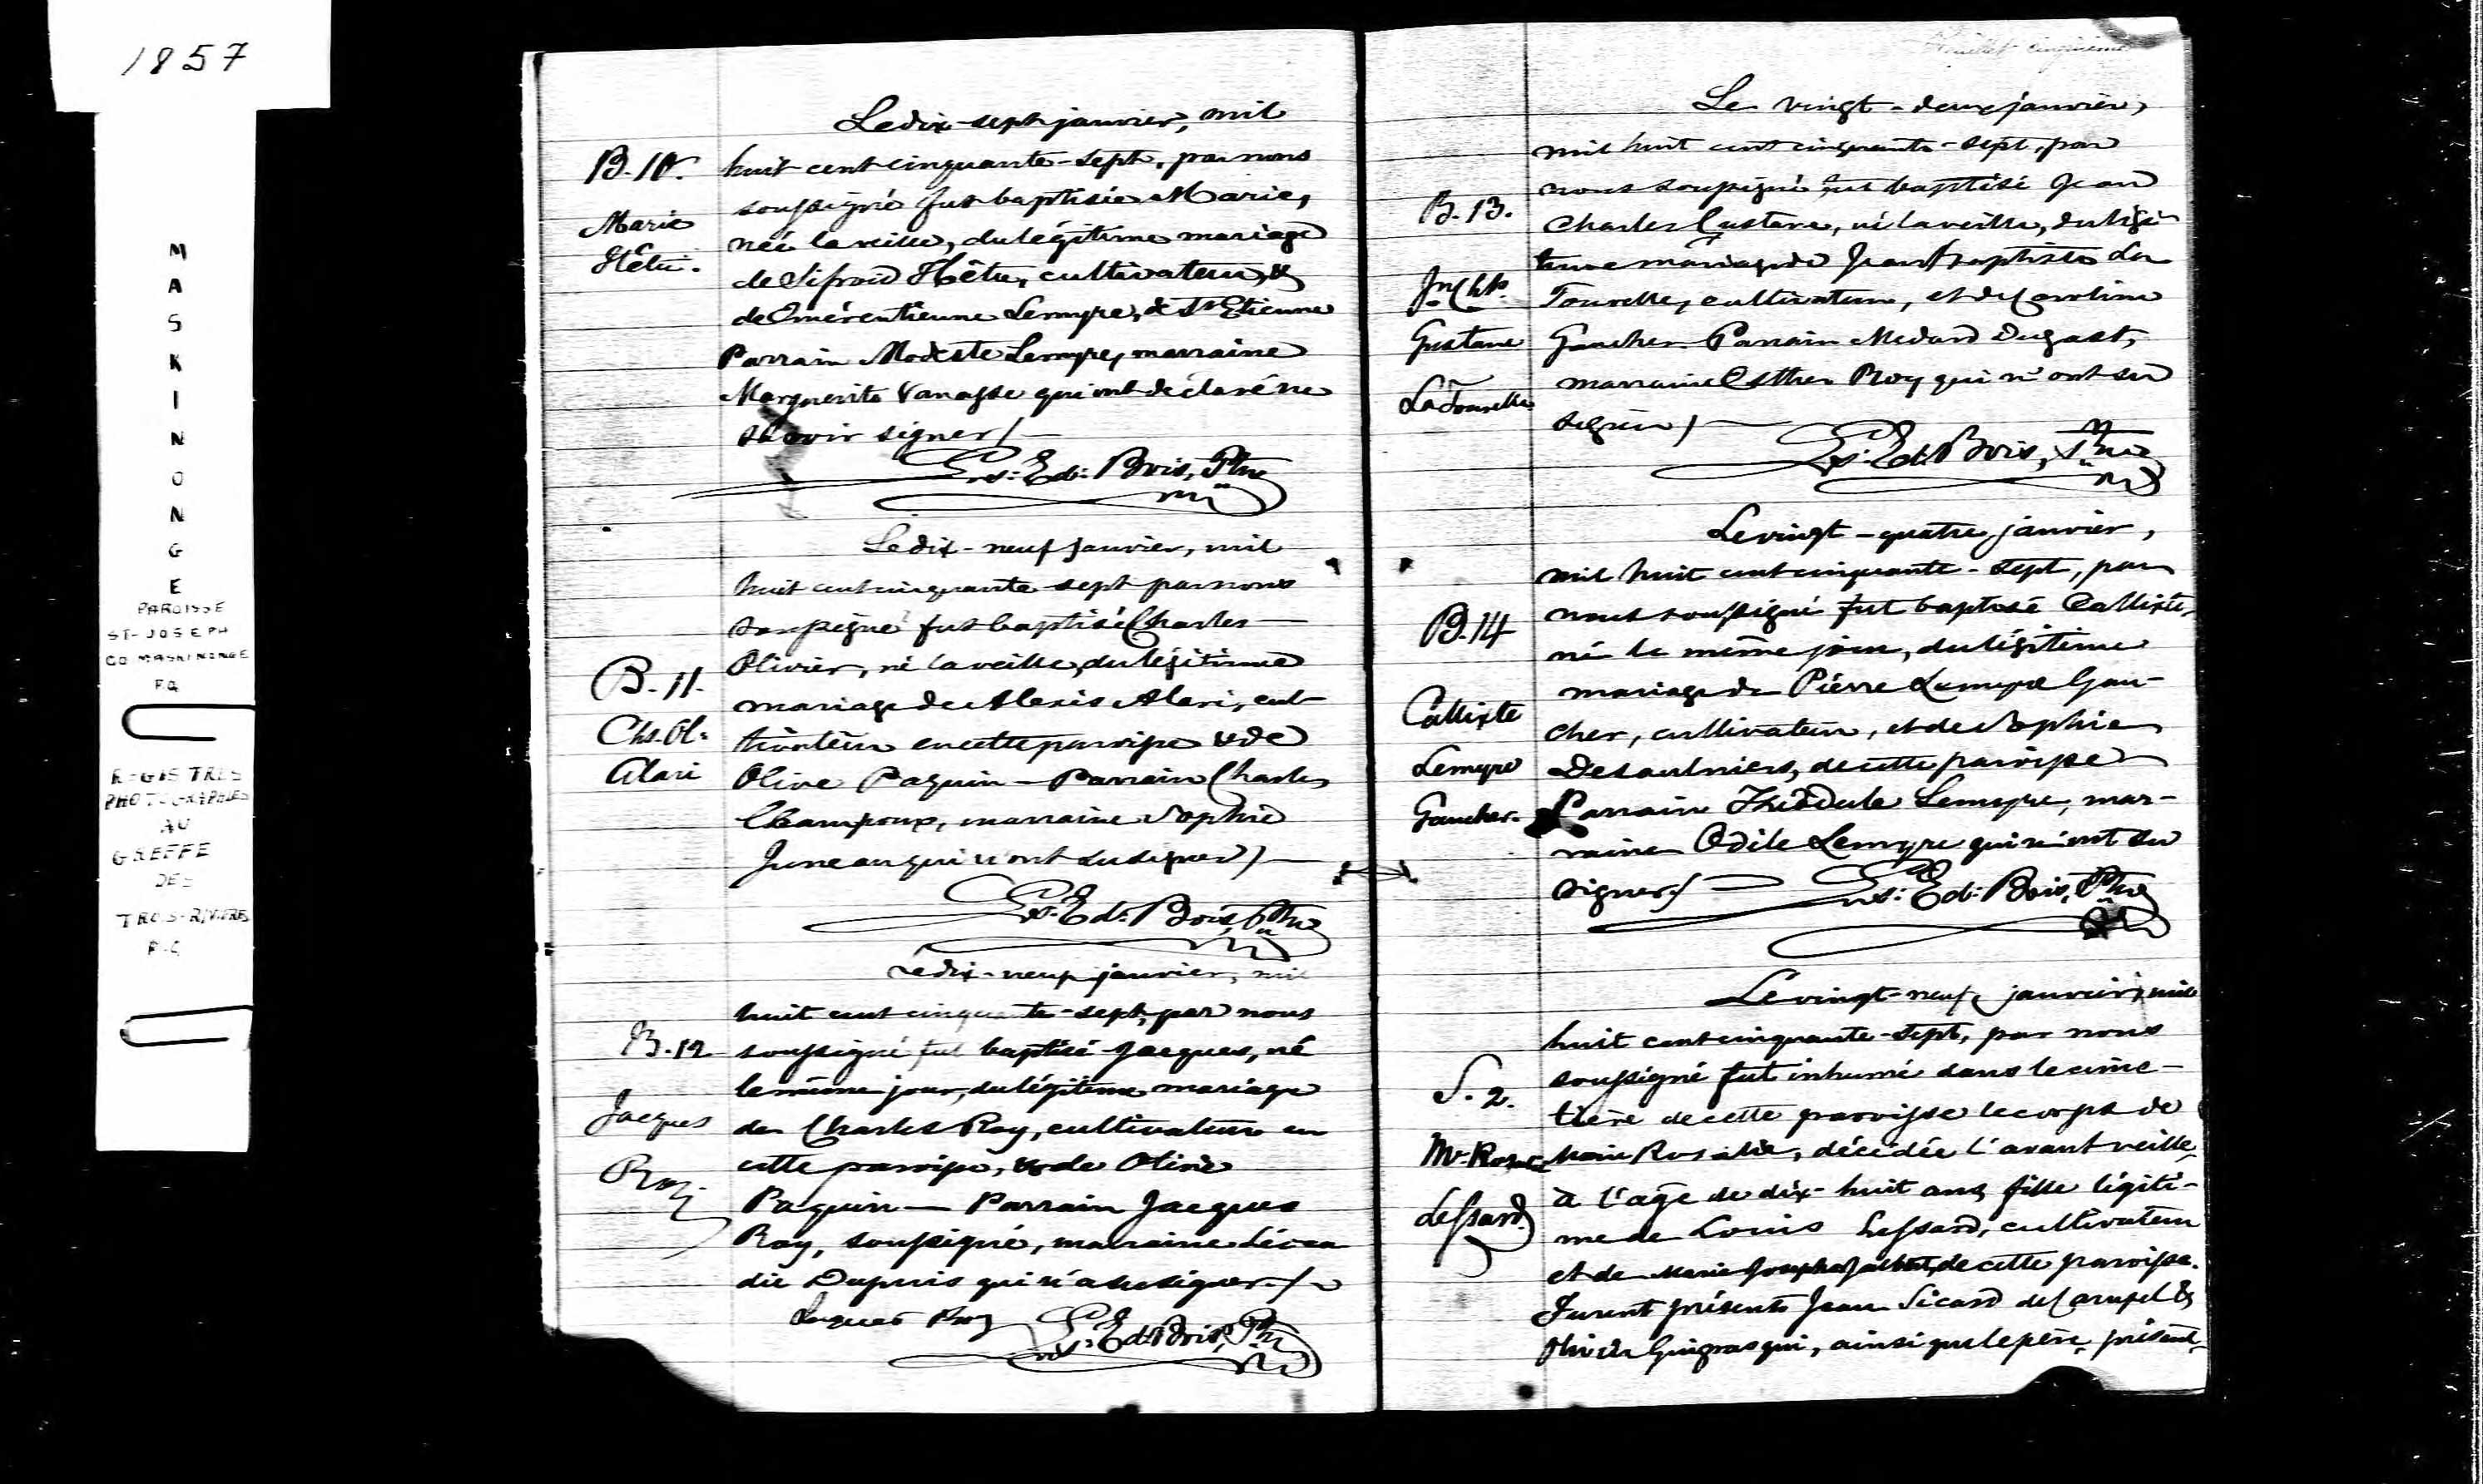 1857
MASKINONGE
PAROISSE
ST-JOSEPH
CO MASKINONGE
P.Q.
REGISTRES
PHOTOGRAPHIES
AU
GREFFE
DES
TROIS-RIVIERES
P.Q.
Le dix-sept janvier, mil
B. 10. huit cent cinquante-sept, par nous
soussigné fut baptisée Marie,
Marie née la veille, du légitime mariage
Hêtu. de Sifroid Hêtu, cultivateur, &
de Emérentienne Lemyre, de St Etienne
Parrain Modeste Lemyre, marraine
Marguerite Vanasse qui ont déclaré ne
savoir signer /
Ls. Ed. Bois, Ptre
Le dix-neuf janvier, mil
huit cent cinquante-sept par nous
soussigné fut baptisé Charles
B. 11. Olivier, né la veille, du légitime
mariage de Alexis Alari, cul-
Chs. Ol. tivateur en cette paroisse & de
Alari Olive Paquin — Parrain Charles
Champoux, marraine Sophie
Juneau qui n'ont su signer /
Ls. Ed. Bois, Ptre
Le dix-neuf janvier, mil
huit cent cinquante-sept, par nous
B. 12 soussigné fut baptisé Jacques, né
le même jour, du légitime mariage
Jacques de Charles Roy, cultivateur en
Roy cette paroisse, & de Olive
Paquin — Parrain Jacques
Roy, soussigné, marraine Léoca
die Dupuis qui n'a su signer. /
Jacques Roy Ls. Ed. Bois, Ptre
Feuillet cinquième
Le vingt-deux janvier,
mil huit cent cinquante-sept, par
nous soussigné fut baptisé Jean
B. 13. Charles Gustave, né la veille, du légi-
time mariage de Jean Baptiste La
Jn Chs. Tourelle, cultivateur, et de Caroline
Gustave Gaucher. Parrain Medard Dugast,
marraine Esther Roy qui n'ont su
LaTourelle signer /
Ls. Ed. Bois, Ptre
Le vingt-quatre janvier,
mil huit cent cinquante-sept, par
B. 14 nous soussigné fut baptisé Callixte,
né le même jour, du légitime
mariage de Pierre Lemyre Gau-
Callixte cher, cultivateur, et de Sophie
Lemyre Desaulniers, de cette paroisse
Gaucher. Parrain Théodule Lemyre, mar-
raine Odile Lemyre qui n'ont su
signer / Ls. Ed. Bois, Ptre
Le vingt-neuf janvier, mil
huit cent cinquante-sept, par nous
S. 2. soussigné fut inhumé dans le cime-
tière de cette paroisse le corps de
M. Rosalie Marie Rosalie, décédée l'avant veille,
à l'age de dix-huit ans, fille légiti-
Lessard me de Louis Lessard, cultivateur
et de Marie Josephe de cette paroisse.
Furent présents Jean Sicard de Carufel &
Gingras qui, ainsi que le père, présent,